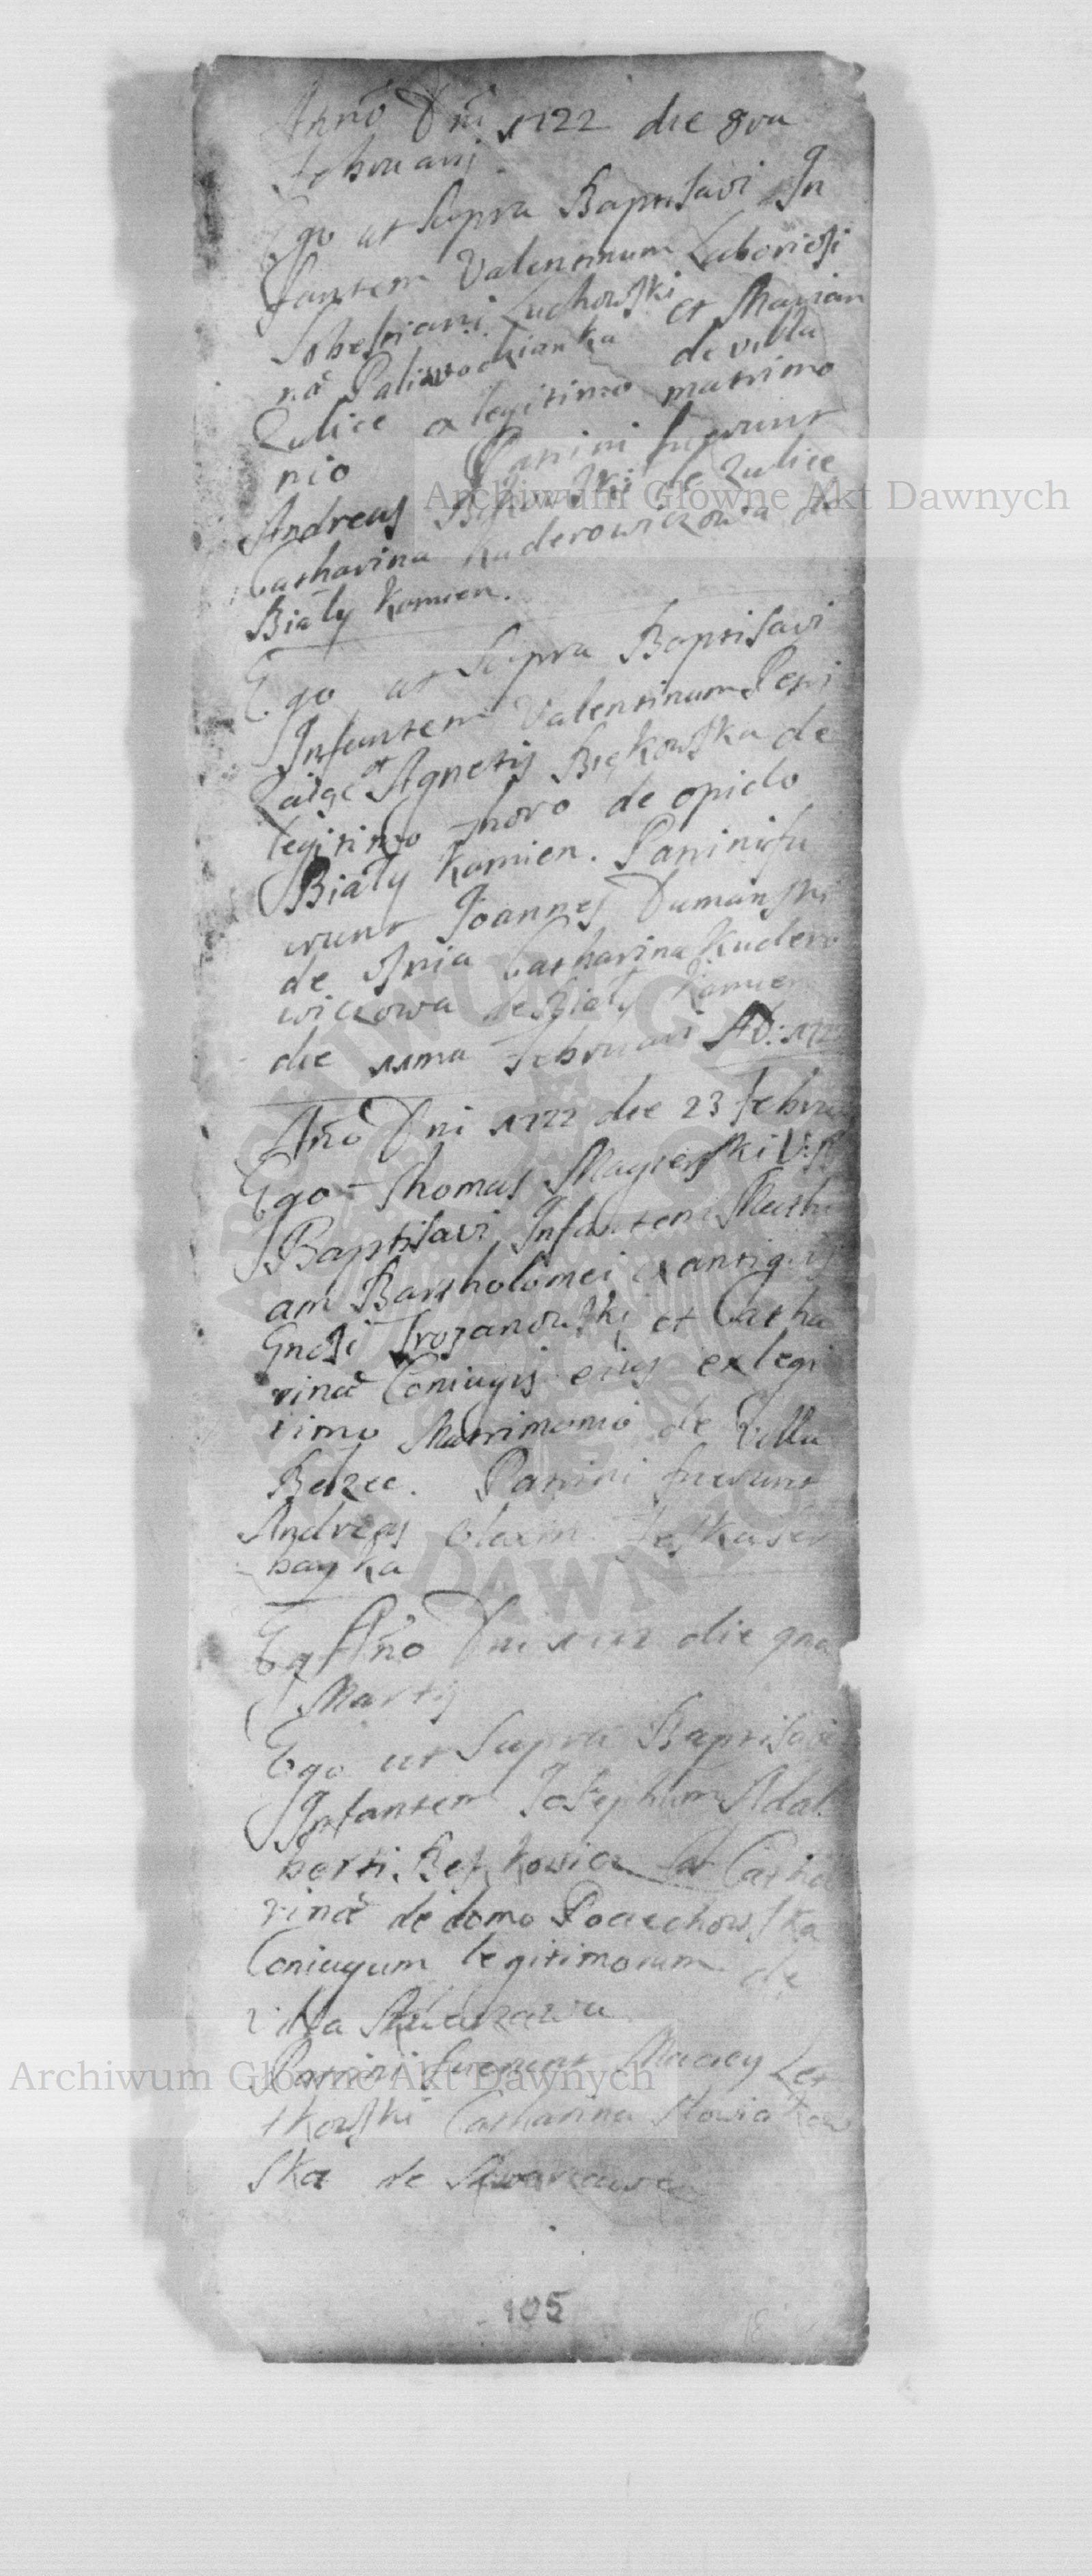 Anno Dni 1722 die 8va
Februarij
Ego ut Supra Baptisavi In
fantem Valentinum Laboriosi
Sebestiani Luchowski et Marian
næ Paliwodzianka de villa
Zulice ex legitimo matrimo
nio Patrini fuerunt
Andreas de Zulice
Catharina Kuderowiczowa de
Biały Kamien.
Ego ut Supra Baptisavi
Infantem Valentinum Petri
Zaiąc et Agnetis Bιękowska de
legitimo thoro de opido
Biały Kamien. Patrini fu
erunt Joannes Dumanski
de Catharina Kudero
wiczowa de Biały Kamien
die 11ma Februari AD: 1722
Ano Dni 1722 die 23 Febru
Ego Thomas Magierski V:P
Baptisavi Infantem Mathi
am Bartholomei ex antiquis
Gnosi Trojanowski et Catha
rinæ Coniugis eius ex legi
timo Matrimonio de Villa
Bełzec. Patrini fuerunt
Andreas
bayka
Eg Ano Dni 1722 die 9na
Martij
Ego ut Supra Baptisavi
Infantem Josephum Adal
berti et Catha
rinæ de domo Pociechowska
Coniugum legitimorum de
villa
Patrini fuerunt Maciey Let
kowski Catharina Nowiakow
ska de
105
Archiwum Główne Akt Dawnych
Archiwum Główne Akt Dawnych